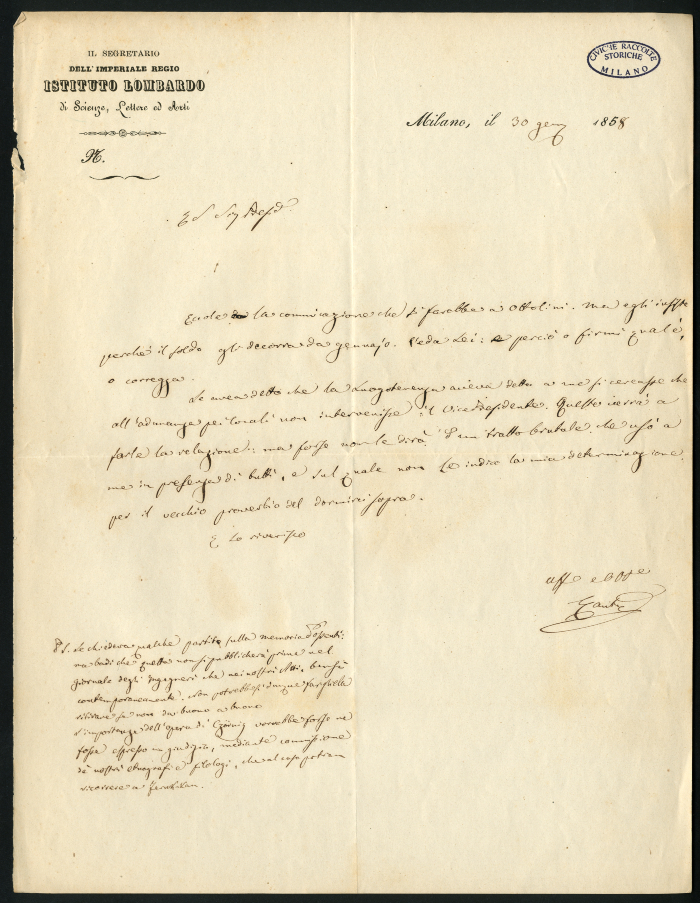 IL SEGRETARIO
DELL'IMPERIALE REGIO
ISTITUTO LOMBARDO
di Scienze, Lettere ed Arti
N.
CIVICHE RACCOLTE
STORICHE
MILANO
Milano, il 30 gen 1858
Sig Presd
la comunicazione che si farebbe a Ottolini. Ma egli insiste
perché il soldo gli decorra da gennajo. Veda Lei: e perciò o firmi qual è,
o corregga.
Le avea detto che la Luogotenenza aveva detto a me si cercasse che
all'adunanza pei locali non intervenisse il Vicepresidente. Questo verrà a
farle la relazione: ma forse non le dirà d'un tratto brutale che usò a
me in presenza di tutti, e sul quale non Le indico la mia determinazione
per il vecchio proverbio del dormirci sopra.
E La riverisco
aff e obb
Cantù
PS. Se chiedera qualche partito sulla memoria Possenti:
ma badi che questa non si pubblicherà prima nel
giornale degli Ingegneri che nei nostri Atti, bensì
contemporaneamente. Non potrebbesi dunque fargliela
ritirare se non da buono a buono
L'importanza dell'opera di Czörnig vorrebbe forse ne
fosse espresso un giudizio, mediante commissione
de nostri etnografi e filologi, che al caso potran
ricorrere a